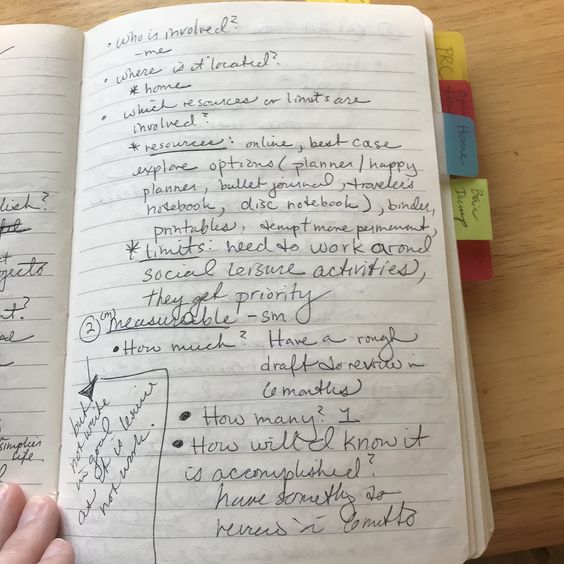 • who is involved?
- me
• where is it located?
* home
• which resources or limits are
involved?
* resources: online, best case
explore options (planner/happy
planner, bullet journal, traveler's
notebook, disc notebook), binder,
printables, attempt more permanent,
* limits: need to work around
social leisure activities,
they get priority
② (m) measurable - sm
• How much? Have a rough
draft to review in
6 months
• How many? 1
• How will I know it
is accomplished?
have something to
review in 6 months
but
not write
as goal
as it is leisure
not work.
PRO
Home
Brain
Dump
lish?
nt?
simplify
life